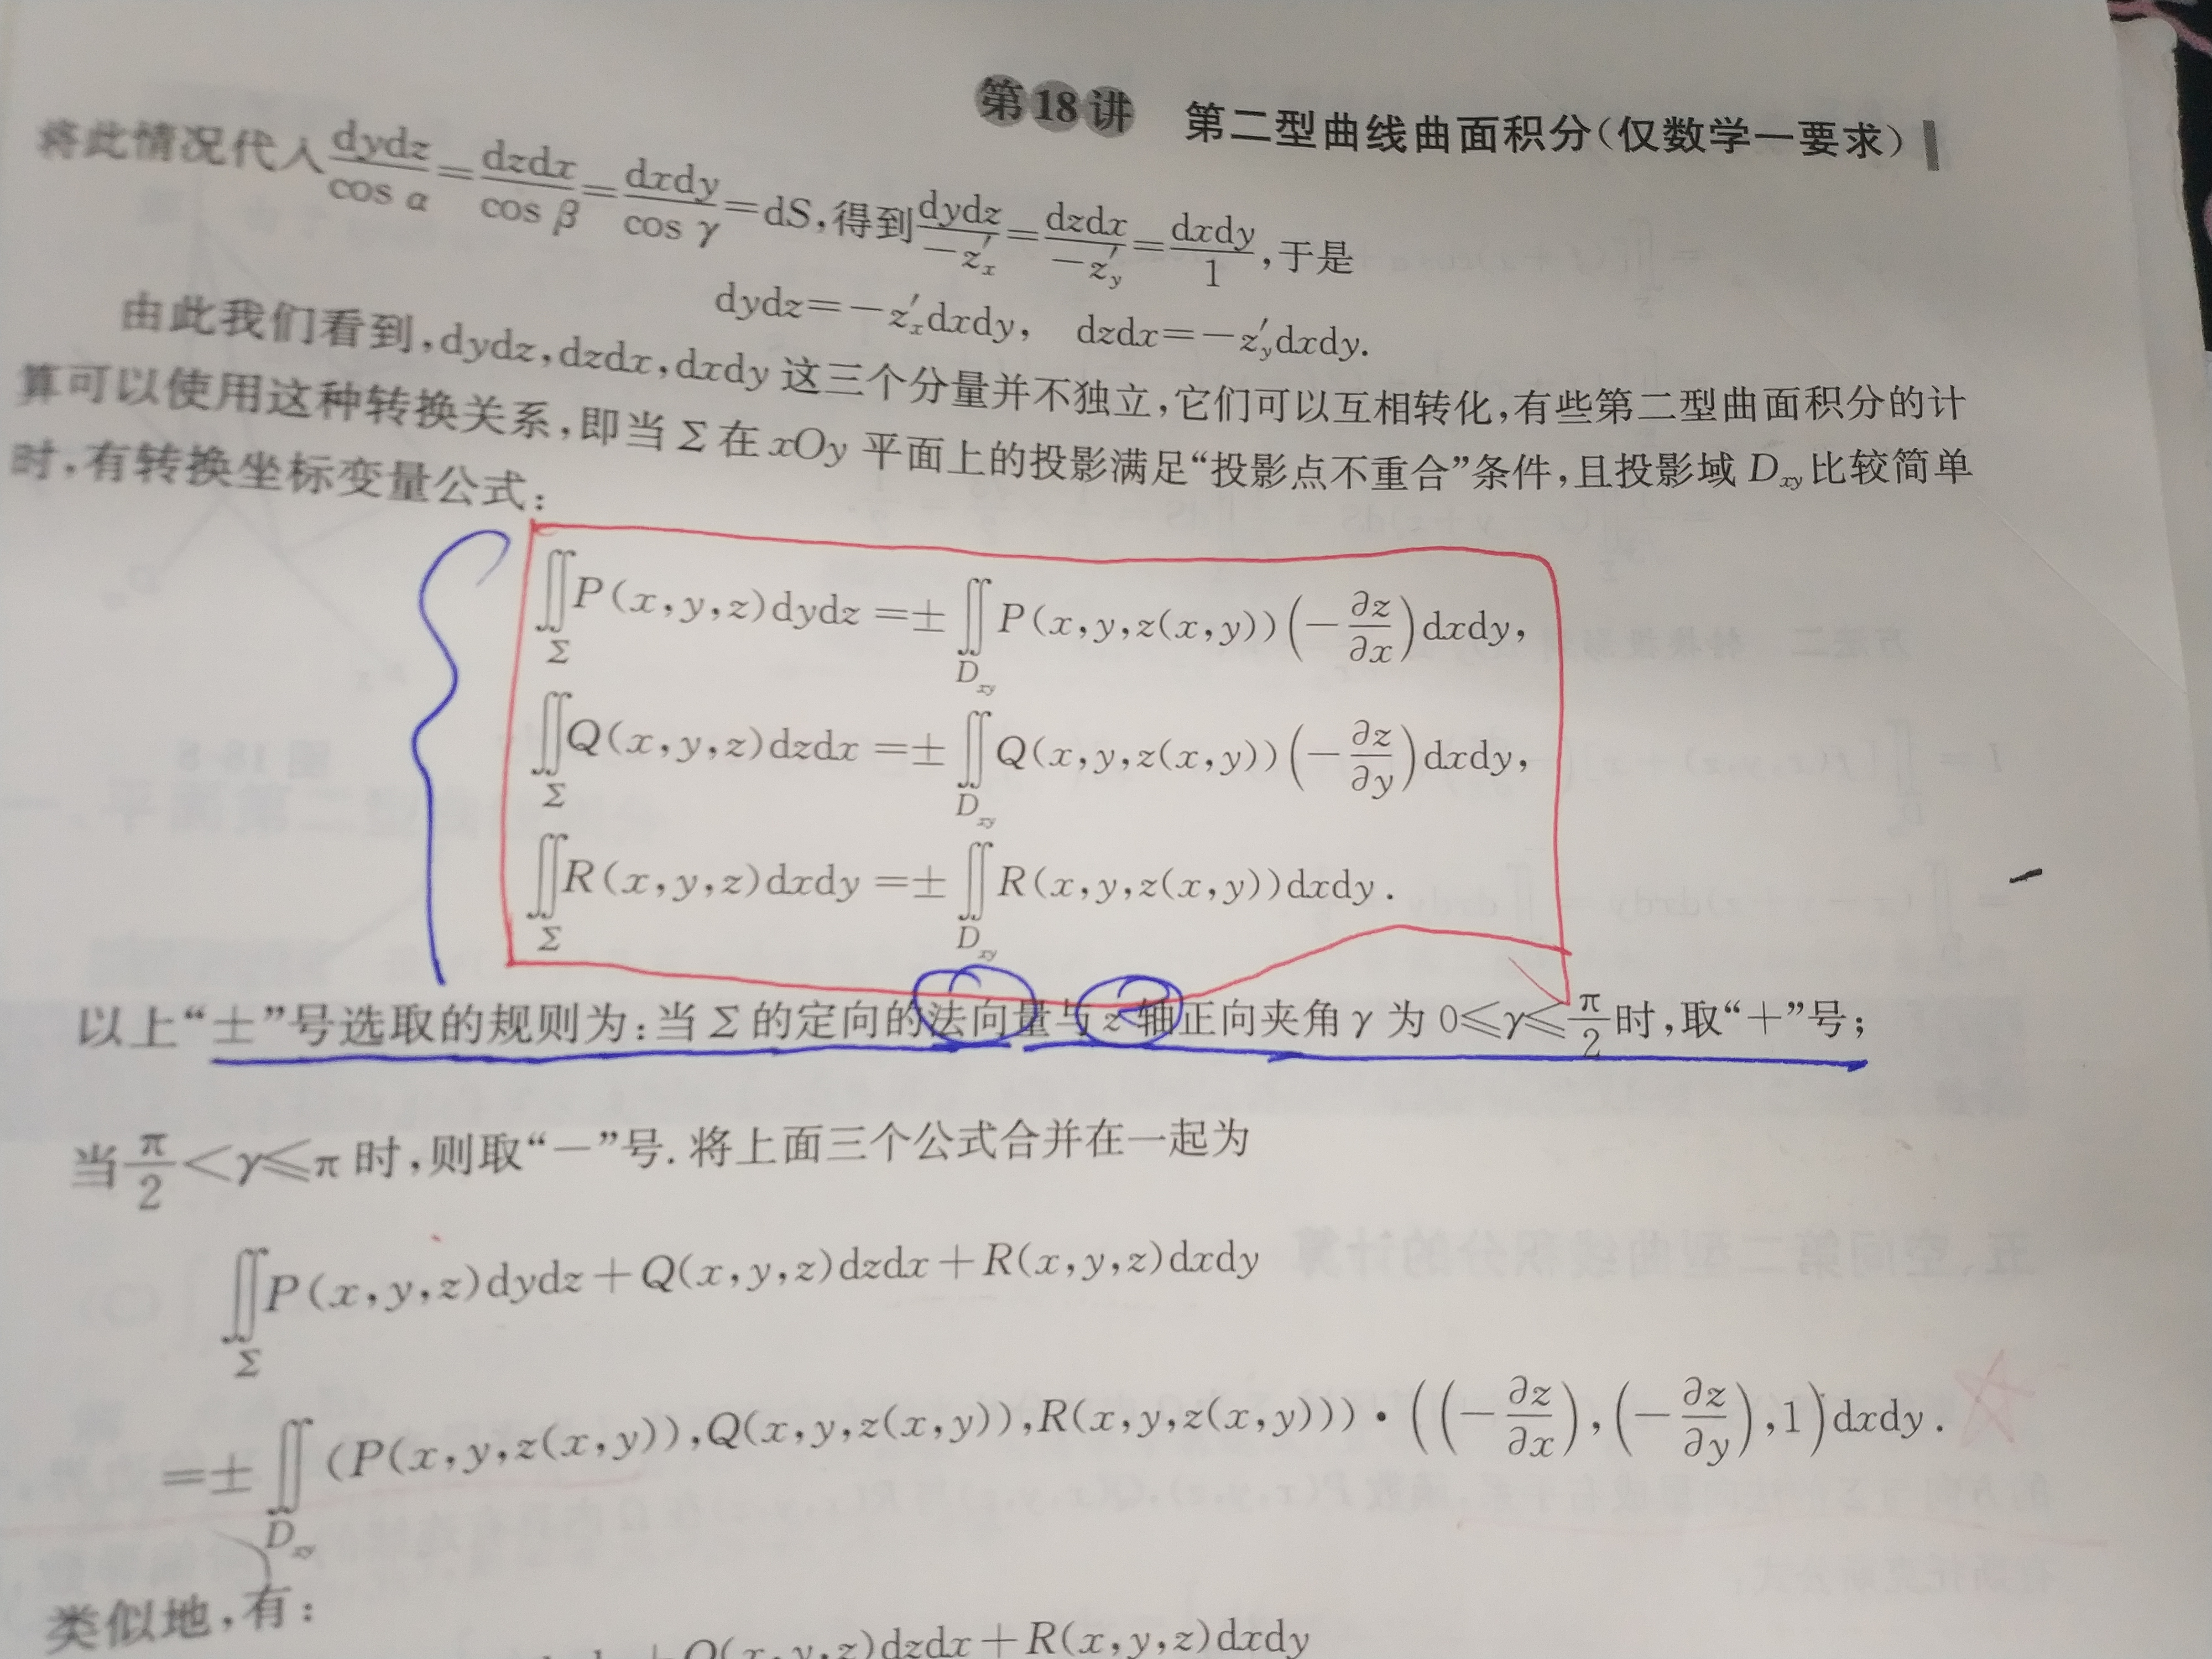 第18讲 第二型曲线曲面积分(仅数学一要求)
将此情况代入dydz/cos α=dzdx/cos β=dxdy/cos γ=dS,得到dydz/−z′ₓ=dzdx/−z′ᵧ=dxdy/1,于是
dydz=−z′ₓdxdy, dzdx=−z′ᵧdxdy.
由此我们看到,dydz,dzdx,dxdy这三个分量并不独立,它们可以互相转化,有些第二型曲面积分的计
算可以使用这种转换关系,即当Σ在xOy平面上的投影满足“投影点不重合”条件,且投影域Dxy比较简单
时,有转换坐标变量公式:
∬Σ P(x,y,z)dydz=±∬Dxy P(x,y,z(x,y))(−∂z/∂x)dxdy,
∬Σ Q(x,y,z)dzdx=±∬Dxy Q(x,y,z(x,y))(−∂z/∂y)dxdy,
∬Σ R(x,y,z)dxdy=±∬Dxy R(x,y,z(x,y))dxdy.
以上“±”号选取的规则为:当Σ的定向的法向量与z轴正向夹角γ为0≤γ≤π/2时,取“+”号;
当π/2<γ≤π时,则取“−”号.将上面三个公式合并在一起为
∬Σ P(x,y,z)dydz+Q(x,y,z)dzdx+R(x,y,z)dxdy
=±∬Dxy (P(x,y,z(x,y)),Q(x,y,z(x,y)),R(x,y,z(x,y)))·((−∂z/∂x),(−∂z/∂y),1)dxdy.
类似地,有:
+Q(x,y,z)dzdx+R(x,y,z)dxdy